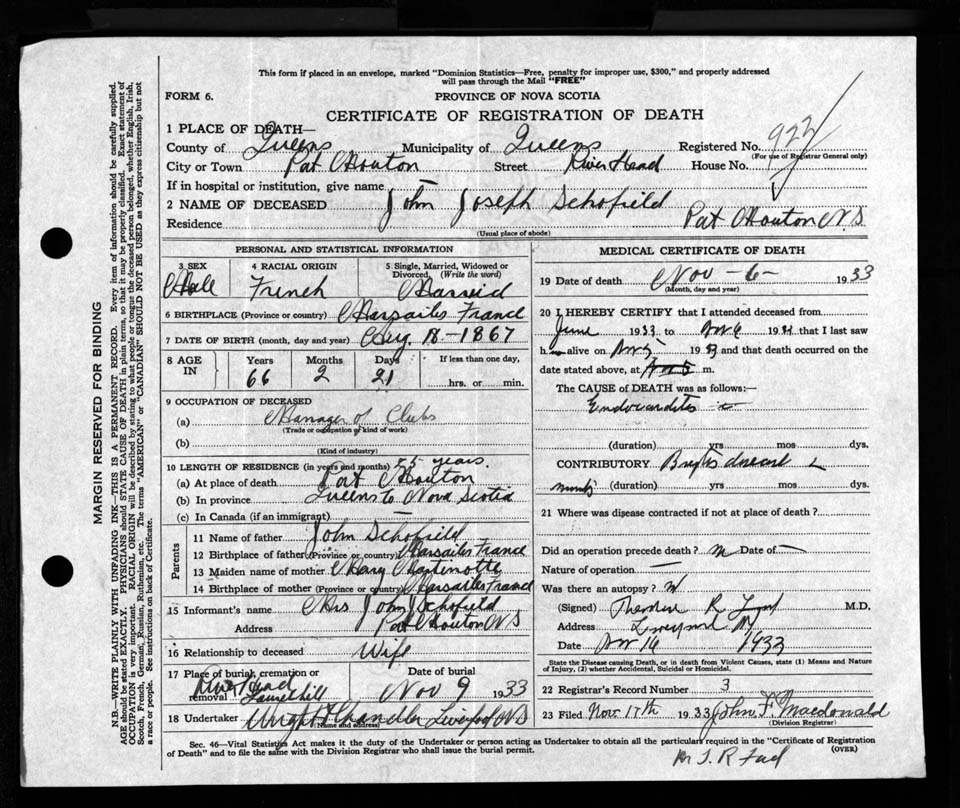 This form if placed in an envelope, marked "Dominion Statistics—Free, penalty for improper use, $300," and properly addressed
will pass through the Mail "FREE"
FORM 6. PROVINCE OF NOVA SCOTIA
CERTIFICATE OF REGISTRATION OF DEATH
1 PLACE OF DEATH—
County of Queens Municipality of Queens Registered No. 922
(For use of Registrar General only)
City or Town Port Mouton Street River Head House No.
If in hospital or institution, give name —
2 NAME OF DECEASED John Joseph Schofield
Residence Port Mouton N.S
(Usual place of abode)
PERSONAL AND STATISTICAL INFORMATION
3 SEX 4 RACIAL ORIGIN 5 Single, Married, Widowed or Divorced, (Write the word)
Male French Married
6 BIRTHPLACE (Province or country) Marsailes France
7 DATE OF BIRTH (month, day and year) 1867
8 AGE IN Years Months Days If less than one day,
66 2 21 hrs. or min.
9 OCCUPATION OF DECEASED
(a) Manager of Clubs
(Trade or occupation or kind of work)
(b)
(Kind of industry)
10 LENGTH OF RESIDENCE (in years and months) years.
(a) At place of death Port Mouton
(b) In province Queens Co Nova Scotia
(c) In Canada (if an immigrant) —
Parents
11 Name of father John Schofield
12 Birthplace of father (Province or country) Marsailes France
13 Maiden name of mother Mary
14 Birthplace of mother (Province or country) Marsailes France
15 Informant's name Mrs John Schofield
Address Port Mouton N S
16 Relationship to deceased Wife
17 Place of burial, cremation or removal River Head
Date of burial Nov 9 1933
18 Undertaker Wright & Chandler Liverpool N.S
(Name and address)
MEDICAL CERTIFICATE OF DEATH
19 Date of death Nov - 6 - 1933
(Month, day and year)
20 I HEREBY CERTIFY that I attended deceased from
June 1933 to Nov 6 19 that I last saw
h alive on Nov 5 19 and that death occurred on
date stated above, at m.
The CAUSE OF DEATH was as follows:—
Endocarditis
(duration) yrs mos dys.
CONTRIBUTORY Brights disease
(duration) yrs mos dys.
21 Where was disease contracted if not at place of death?
Did an operation precede death? No Date of —
Nature of operation —
Was there an autopsy? No
(Signed) R M.D.
Address Liverpool
Date Nov 16 1933
State the Disease causing Death, or in death from Violent Causes, state (1) Means and Nature
of Injury, (2) whether Accidental, Suicidal or Homicidal.
22 Registrar's Record Number 3
23 Filed Nov. 17th 1933 John F. Macdonald
(Division Registrar)
Sec. 46—Vital Statistics Act makes it the duty of the Undertaker or person acting as Undertaker to obtain all the particulars required in the "Certificate of Registration
of Death" and to file the same with the Division Registrar who shall issue the burial permit. (OVER)
MARGIN RESERVED FOR BINDING
N.B.—WRITE PLAINLY WITH UNFADING INK—THIS IS A PERMANENT RECORD. Every item of information should be carefully supplied.
AGE should be stated EXACTLY. PHYSICIANS should STATE CAUSE OF DEATH in plain terms, so that it may be properly classified. Exact statement of
OCCUPATION is very important. RACIAL ORIGIN will be described by stating to what people or tongue the deceased person belonged, whether English, Irish,
Scotch, French, German, Russian, Ruthenian, etc. The terms "AMERICAN" or "CANADIAN" SHOULD NOT BE USED as they express citizenship but not
a race or people. See instructions on back of Certificate.